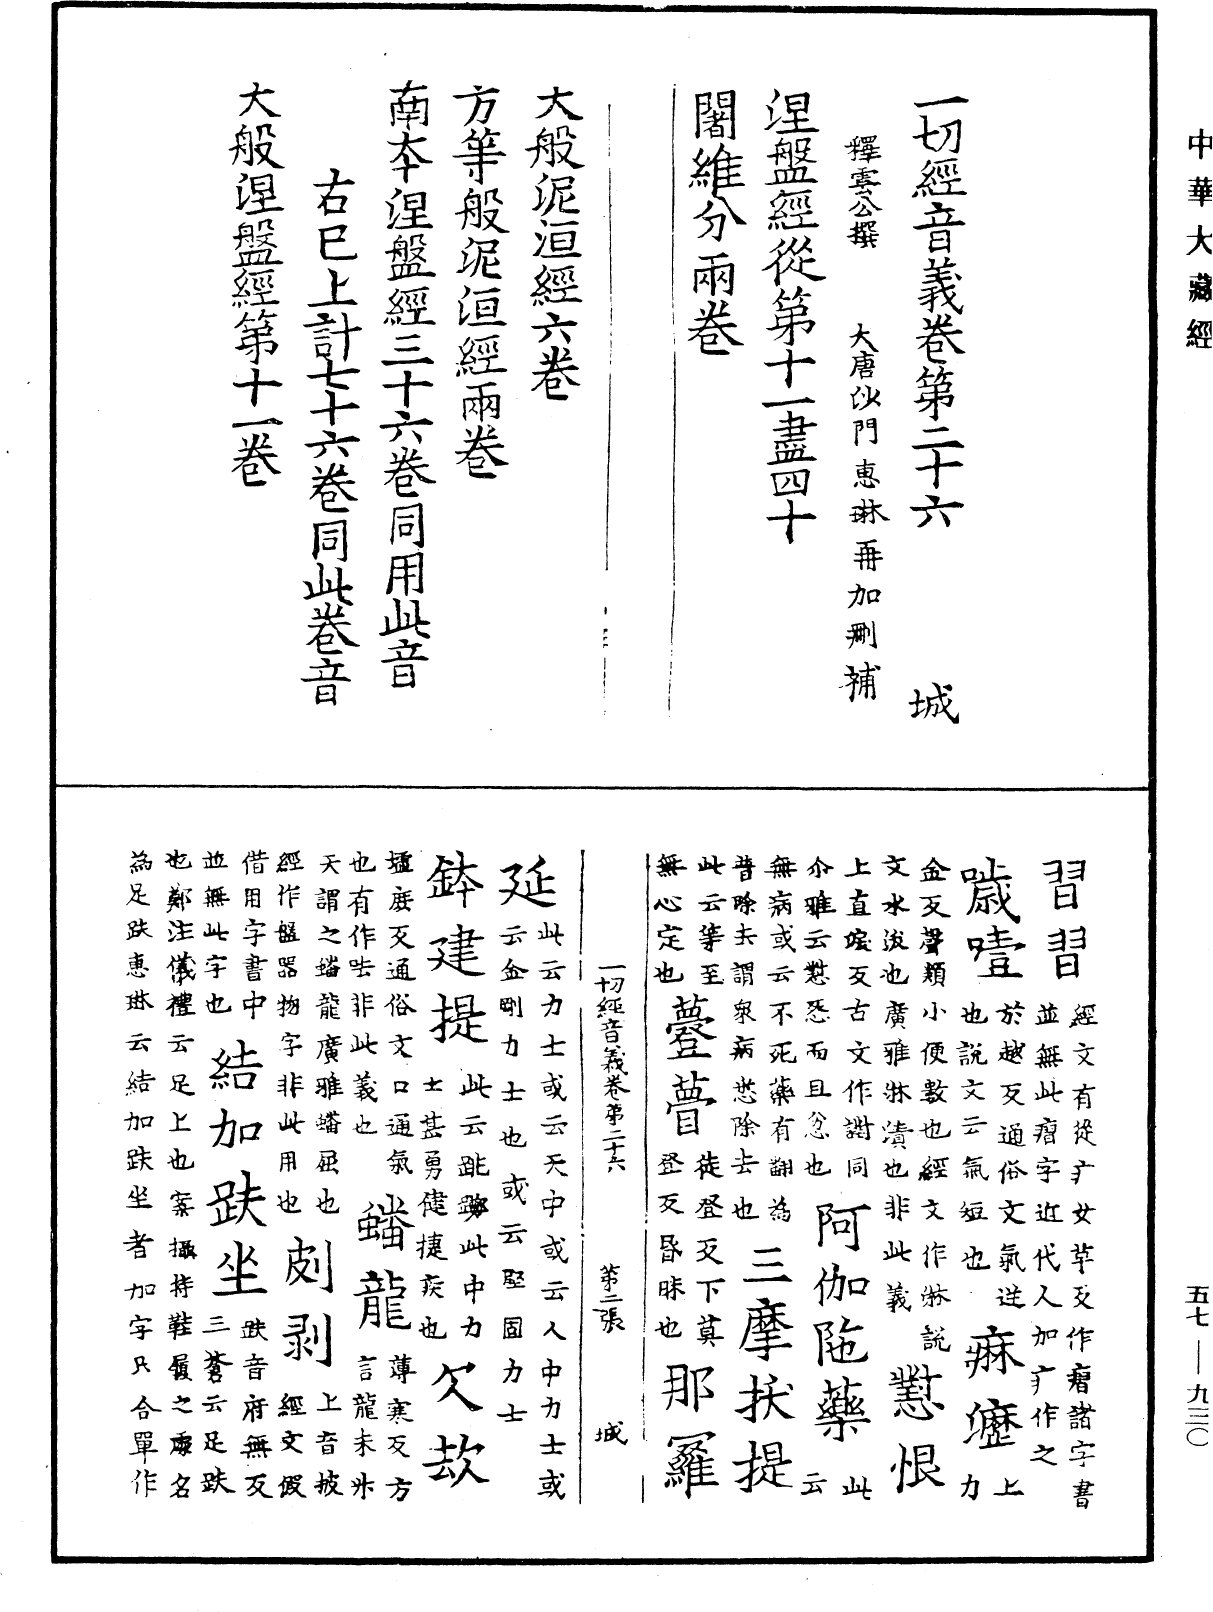 中華大藏經
一切經音義卷第二十六 城
釋雲公撰 大唐沙門惠琳再加刪補
涅盤經從第十一盡四十
闍維分兩卷
大般泥洹經六卷
方等般泥洹經兩卷
南本涅盤經三十六卷同用此音
右已上計七十六卷同此卷音
大般涅盤經第十一卷
習習 經文有從疒女草反作瘤諸字書
並無此瘤字近代人加疒作之
噦噎 於越反通俗文氣逆
也說文云氣短也 痳瀝 上力
金反聲類小便數也經文作淋說
文水沃也廣雅淋漬也非此義 懟恨
上直淚反古文作譵同
尒雅云懟怨而且忿也 阿伽陁藥 此云
無病或云不死藥有翻為
普除去謂衆病悉除去也 三摩拔提
此云等至
無心定也 薹瞢 徒登反下莫
登反昏昧也 那羅
一切經音義卷第二十六 第二張 城
延 此云力士或云天中或云人中力士或
云金剛力士也或云堅固力士
鉢建提 此云跳躑此中力
士甚勇健捷疾也 欠故
墟庶反通俗文口通氣
也有作呿非此義也 蟠龍 薄寒反方
言龍未升
天謂之蟠龍廣雅蟠屈也
經作盤器物字非此用也 剫剥 上音披
經文假
借用字書中
並無此字也 結加趺坐 趺音府無反
三蒼云足趺
也鄭注儀禮云足上也案攝持鞋履之處名
為足趺惠琳云結加趺坐者加字只合單作
五七—九三〇